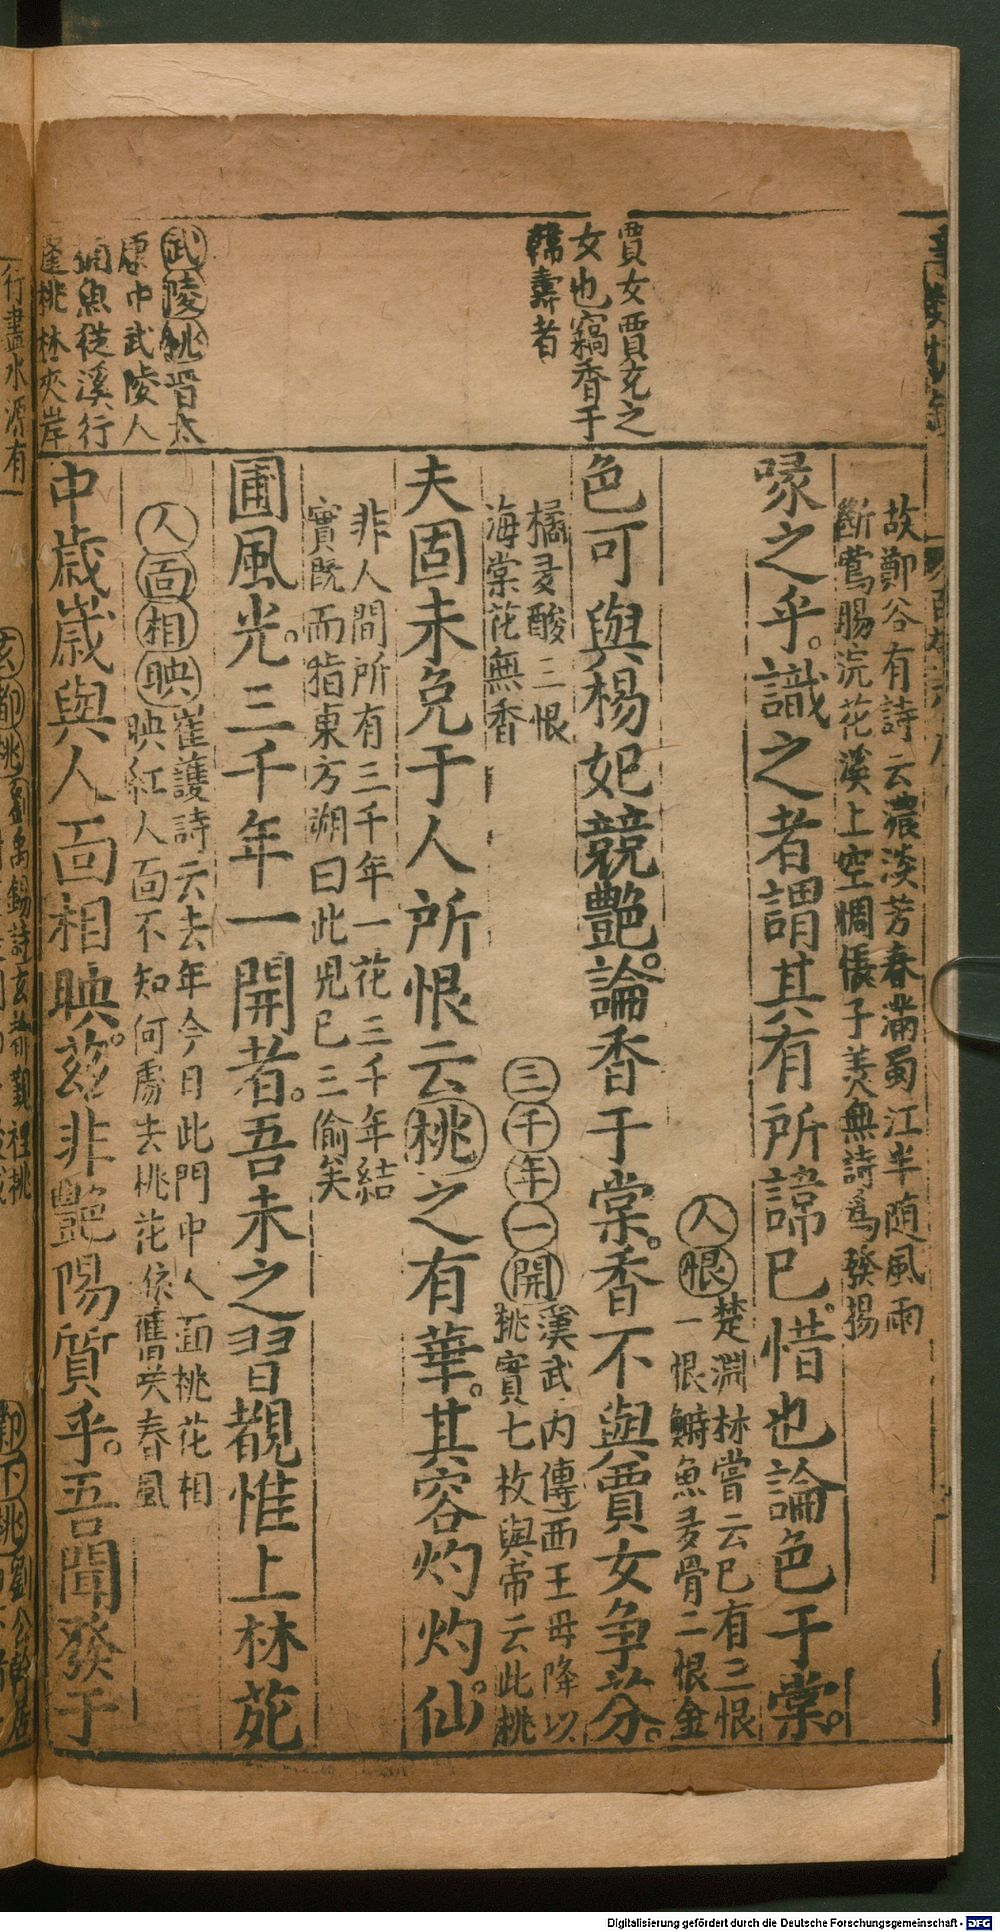 賈女賈充之
女也竊香于
韓壽者
武陵桃晋太
康中武陵人
捕魚從溪行
逢桃林夾岸
故鄭谷有詩云濃淡芳春滿蜀江半随風雨
斷鶯腸浣花溪上空惆悵子羙無詩為發揚
喙之乎。識之者謂其有所諱巳。惜也論色于棠。
人恨楚淵林嘗云巳有三恨
一恨鰣魚多骨二恨金
橘多酸三恨
海棠花無香
色可與楊妃競艷。論香于棠。香不與賈女争芬。
三千年一開漢武内傳西王母降以
桃實七枚與帝云此桃
非人間所有三千年一花三千年結
實既而指東方朔曰此兒已三偷矣
夫固未免于人所恨云桃之有華。其容灼灼。仙
圃風光。三千年一開者。吾未之習覩惟上林苑
人面相映崔護詩云去年今日此門中人面桃花相
映紅人面不知何處去桃花依舊咲春風
中歳歲與人面相映。兹非艷陽質乎。吾聞發于
行盡水源有
玄都桃劉禹錫詩玄都觀裡桃
Digitalisierung gefördert durch die Deutsche Forschungsgemeinschaft - DFG